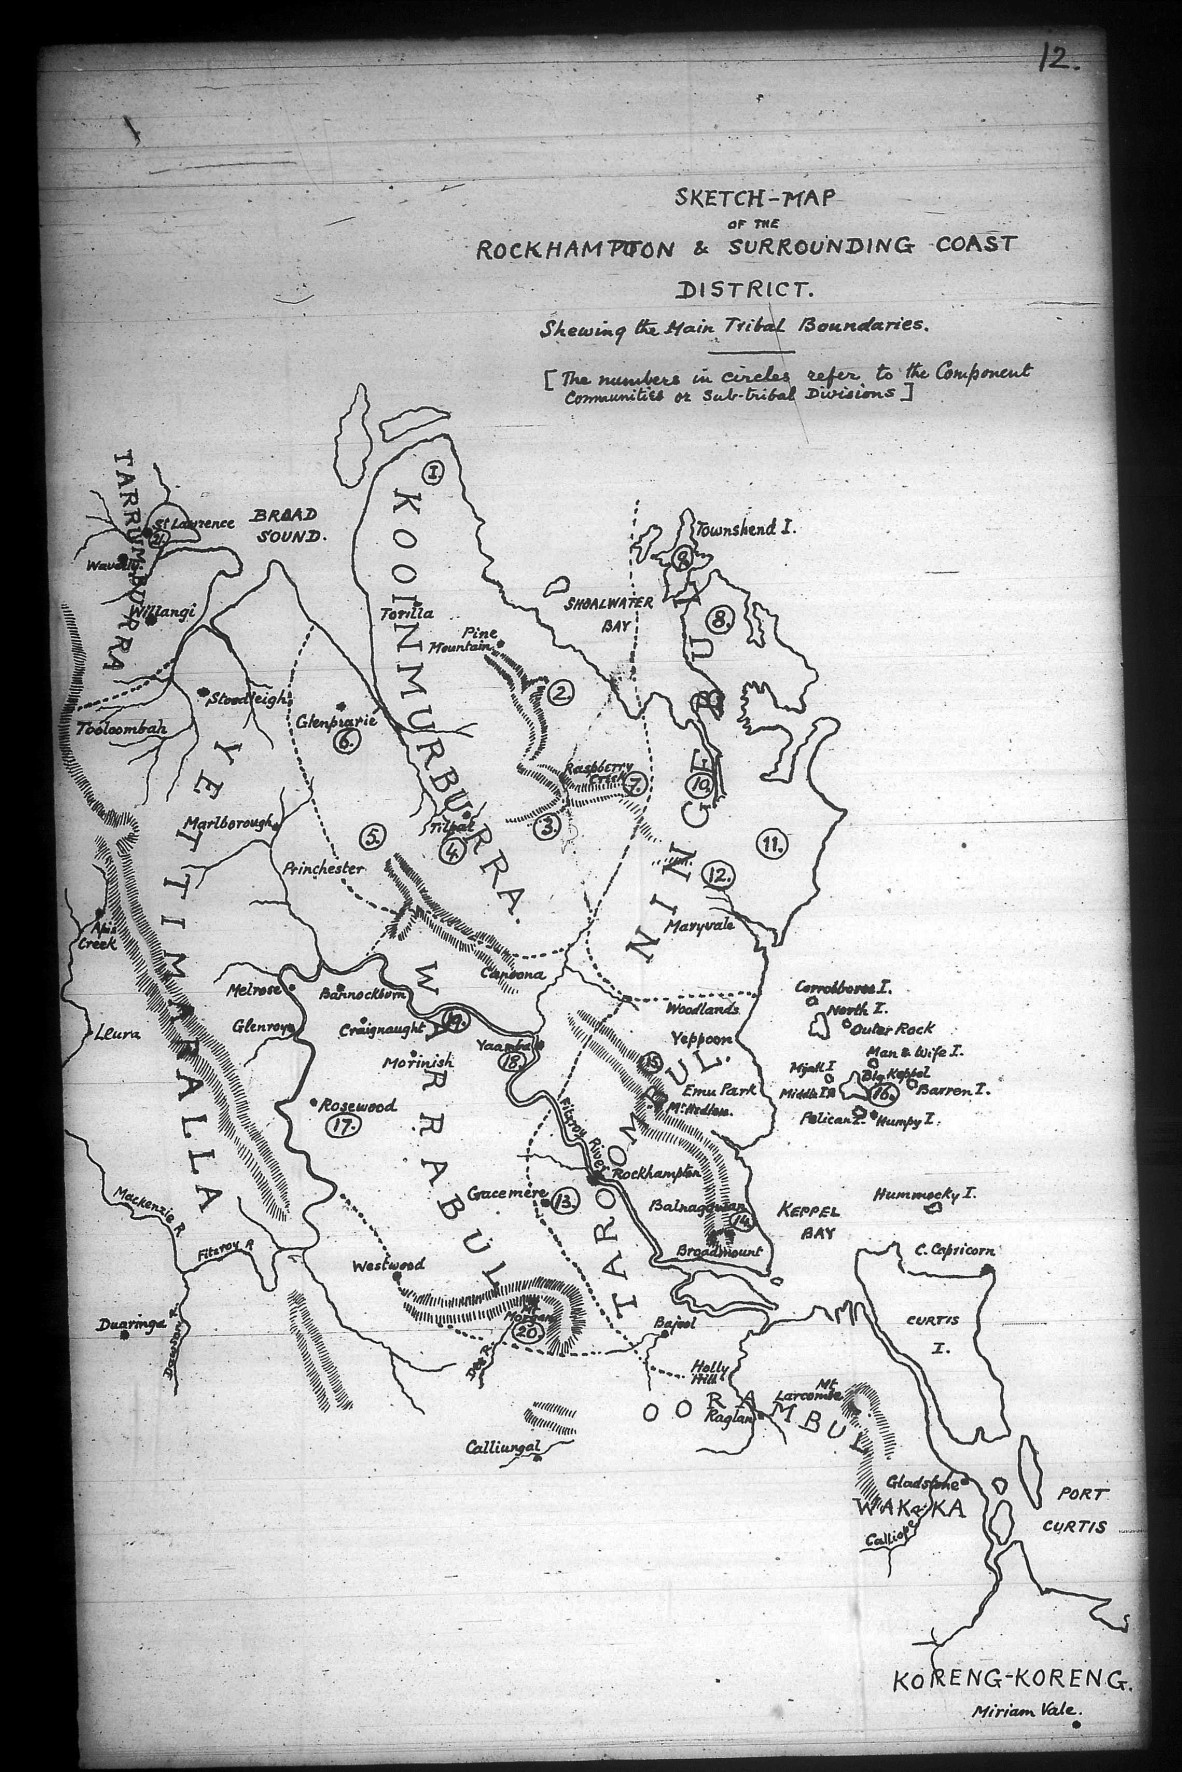 12.
SKETCH-MAP
OF THE
ROCKHAMPTON & SURROUNDING COAST
DISTRICT.
Shewing the Main Tribal Boundaries.
[The numbers in circles refer to the Component
Communities or Sub-tribal Divisions]
1.
TARRUMBURRA
St Lawrence
21.
BROAD
SOUND.
Waverly
Willangi
KOONMURBURRA.
Torilla
Pine
Mountain
2
SHOALWATER
BAY
Townshend I.
9
8.
NINGEBUL
Tooloombah
Stoodleigh
Glenprairie
6.
YETTIMARALLA
Marlborough
Princhester
5.
Tilpal
4
3.
Raspberry
Creek
7.
10.
11.
12.
Maryvale
Apis
Creek
Leura
Melrose
Glenroy
Bannockburn
Canoona
WARRABUL
Craignaught
19.
Morinish
Yaamba
18.
Rosewood
17.
Woodlands
Yeppoon
15
Emu Park
Mt Hedlow.
TAROOMBUL.
Corrobboree I.
North I.
Outer Rock
Man & Wife I.
Mjall I
Big Keppel
Middle I
16.
Barren I.
Pelican I.
Humpy I.
Fitzroy River
Rockhampton
Gracemere
13.
Balnagowan
14.
Broadmount
KEPPEL
BAY
Hummocky I.
C. Capricorn
CURTIS
I.
Mackenzie R.
Fitzroy R
Duaringa
Dawson R.
Westwood
Mt
Morgan
20
Dee R.
Bajool
Holly
Hill
OORAMBUL
Raglan
Mt
Larcombe
Calliungal
Gladstone
WAKA-KA
Calliope
PORT
CURTIS
KORENG-KORENG.
Miriam Vale.